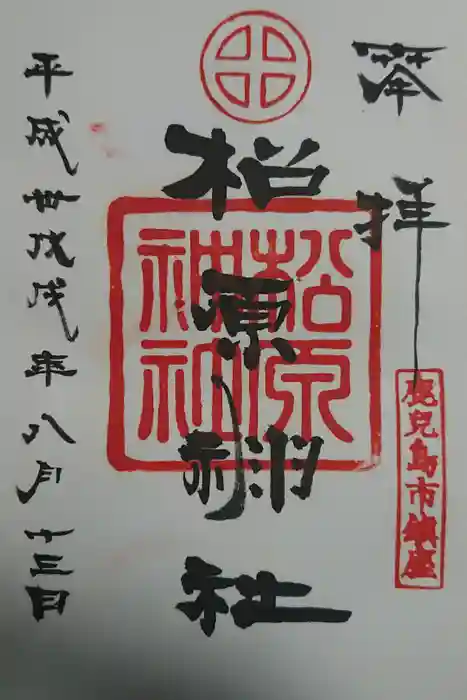 奉拝
鹿兒島市鎮座
松原神社
松原
神社
平成卅戊戌年八月十三日